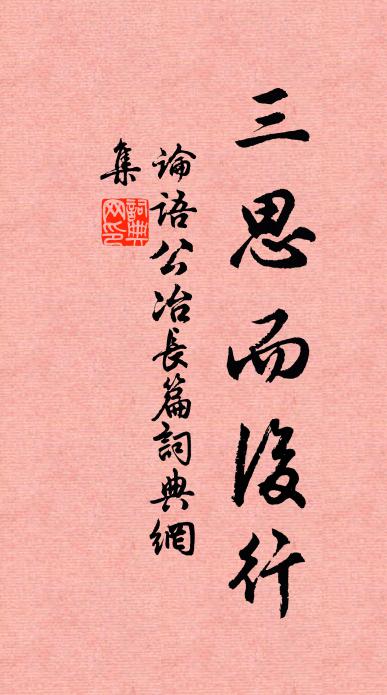 三思而後行
論語公冶長篇詞典網
集
詞典網印